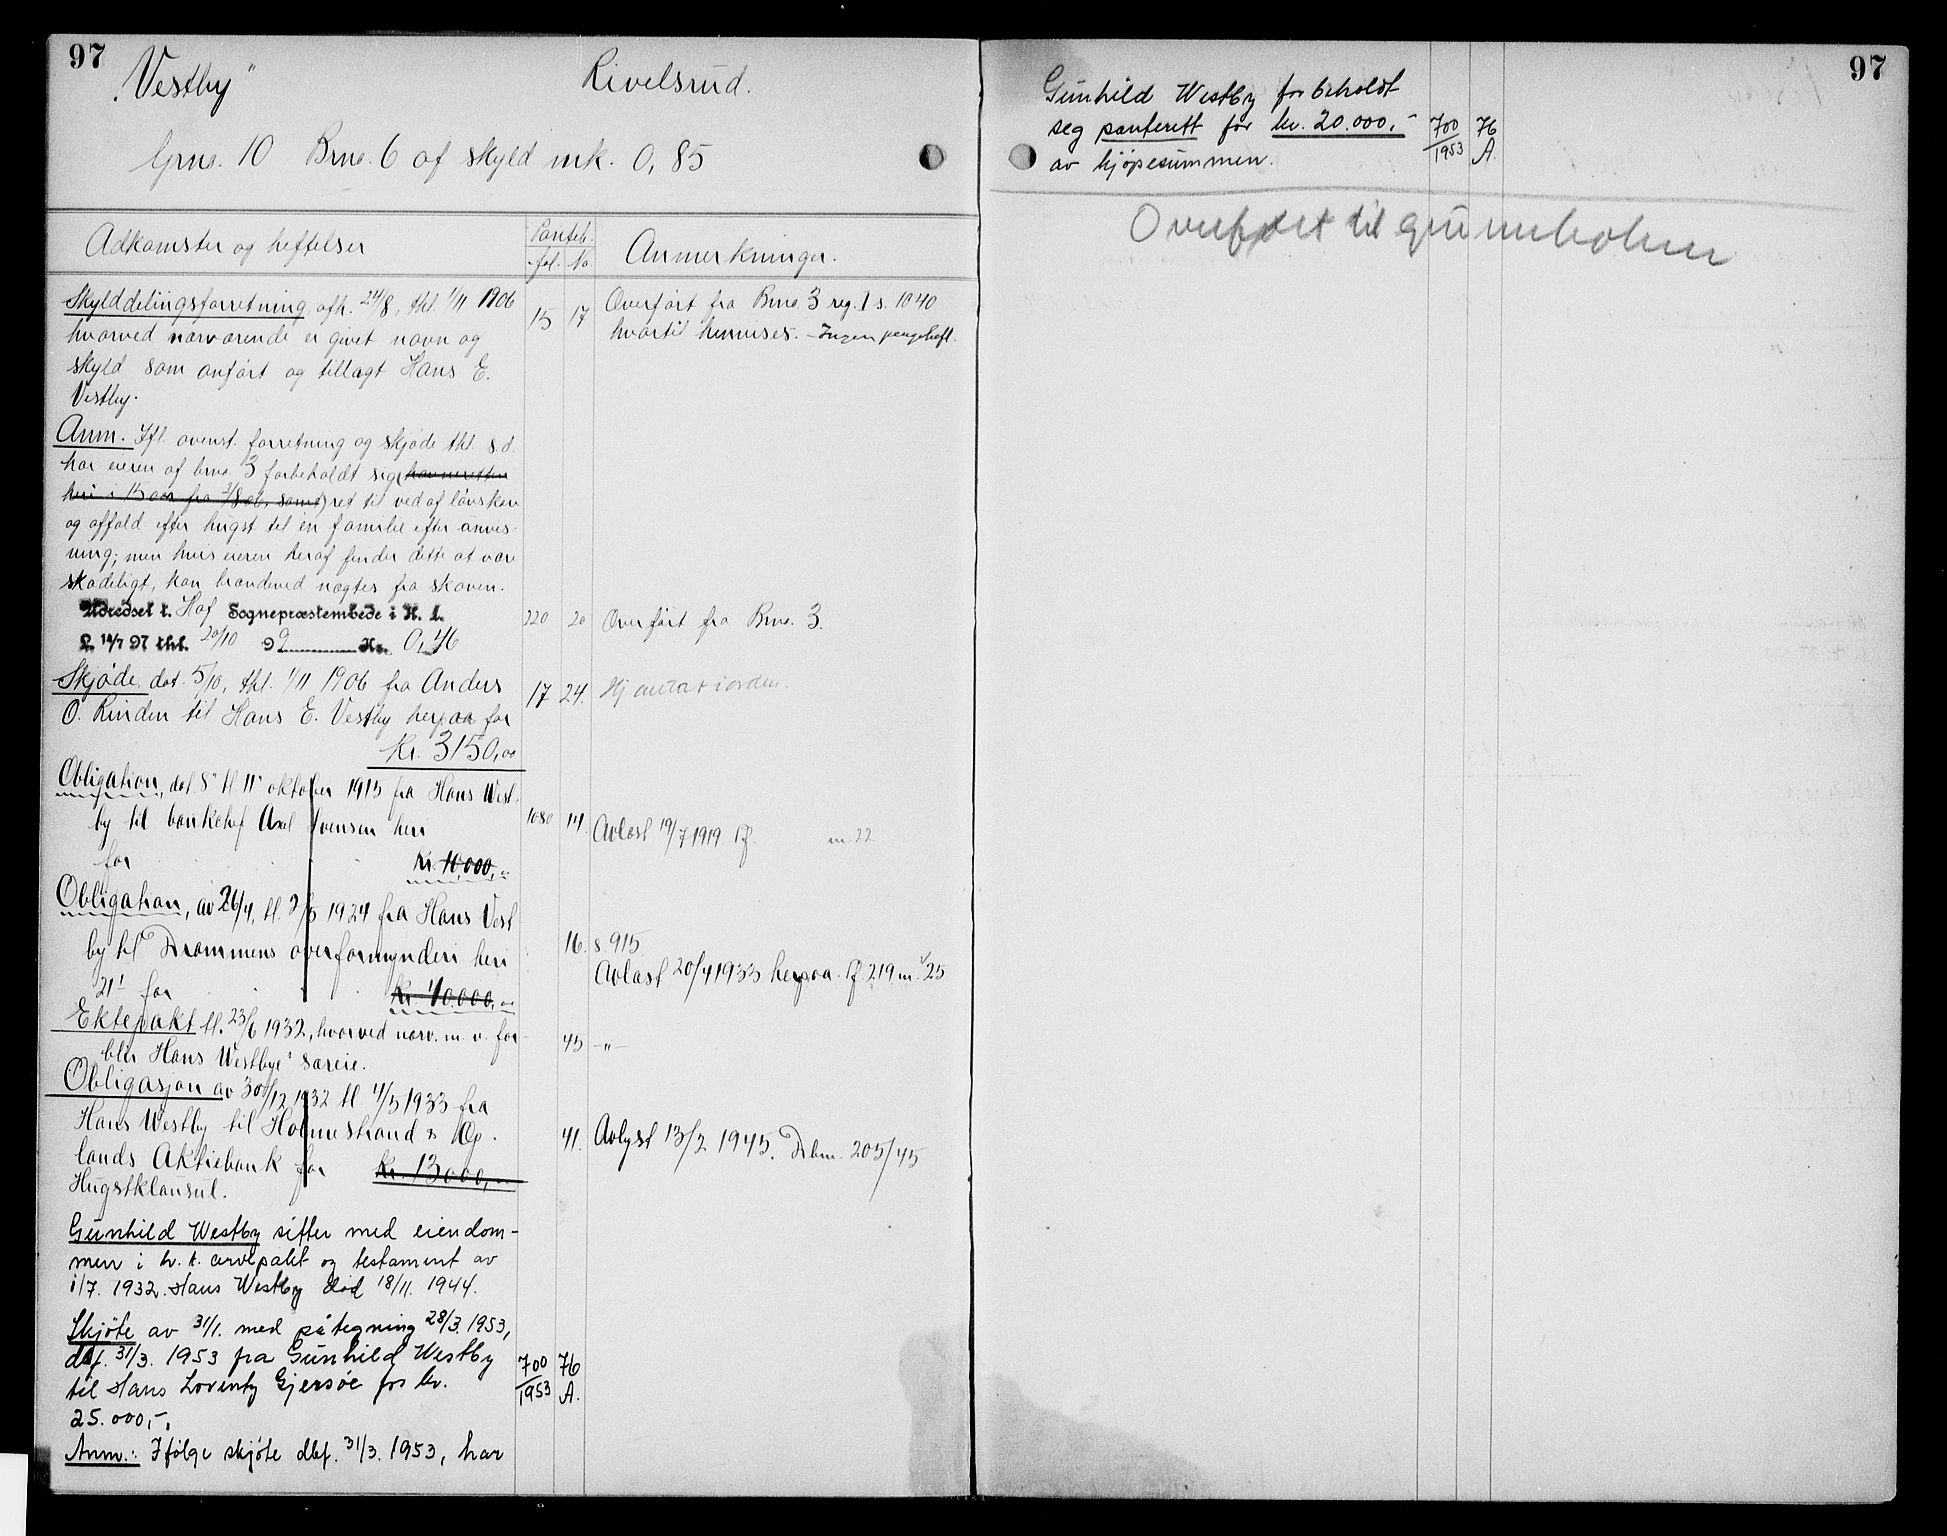 97
"Vestby" Rivelsrud.
Grno. 10 Brno. 6 af skyld mk. 0,85
Adkomster og heftelser
Panteb.
fol. No
Anmerkninger.
Skylddelingsforretning afh. 24/8, thl. 1/11 1906
hvorved nærværende er givet navn og
skyld som anført og tillagt Hans E.
Vestby.
15 17
Overført fra Brno 3 reg. I s. 1040
hvortil henvises. - Ingen pengeheft.
Anm. Ifl. ovenst. forretning og skjøde thl. s.d.
har eieren af brno. 3 forbeholdt sig (havneretten
heri i 15 aar fra 2/8 06, samt) ret til ved af løvskov
og affald efter hugst til en familie efter anvis-
ning; men hvis eieren heraf finder dette at være
skadeligt, kan brændeved nægtes fra skoven.
Udredsel t. Hof Sognepræstembede i H. t.
L. 14/7 97 thl. 20/10 99 Kr. 0,46
220 20 Overført fra Brno. 3.
Skjøde dat. 5/10, thl. 1/11 1906 fra Anders
O. Rinden til Hans E. Vestby herpaa for
Kr. 3150,00
17 24. Hj attest i orden
Obligation, dat. 8 tl. 11 oktober 1915 fra Hans West-
by til bankchef Axel Svensen heri
for Kr. 10,000,-
1080 14. Avløst 19/7 1919. Pf. m. 22.
Obligation, av 26/4, tl. 2/5 1924 fra Hans Vest
by til Drammens overformynderi heri
21' for Kr. 10.000,-
16. s. 915
Avløst 20/4 1933 herpaa. Pf. 219 m. 25
Ektepakt tl. 23/6 1932, hvorved nærv. m. v. for-
blir Hans Westbys særeie.
45 -"-
Obligasjon av 30/12 1932 tl. 4/5 1933 fra
Hans Westby til Holmestrand & Op-
lands Aktiebank for Kr. 13000,-
Hugstklausul.
41. Avlyst 13/2 1945. Dbnr. 205/45
Gunhild Westby sitter med eiendom-
men i h. t. arvepakt og testament av
1/7. 1932. Hans Westby død 18/11. 1944.
Skjøte av 31/1. med påtegning 28/3. 1953,
dbf. 31/3. 1953 fra Gunhild Westby
til Hans Lorentz Gjersøe for kr.
25.000,-,
700/1953 76 A.
Anm.: Ifølge skjøte dbf. 31/3. 1953, har
97
Gunhild Westby forbeholdt
seg panterett for kr. 20.000,-
av kjøpesummen.
700/1953 76 A.
Overført til grunnboken